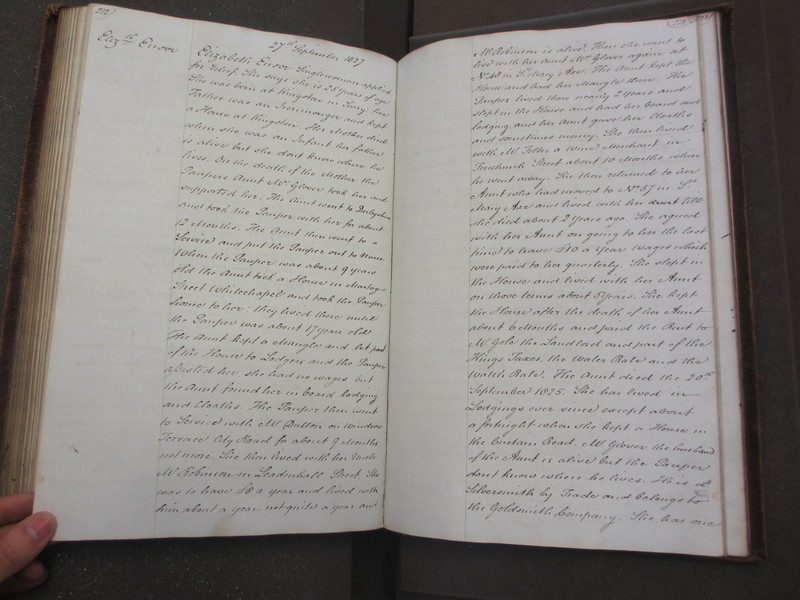 212
27th September 1827
Elizth Ensor
Elizabeth Ensor Singlewoman applied
for relief. She says she is 25 years of age
She was born at Kingston in Surry. Her
Father was an Ironmonger and kept
a House at Kingston. Her Mother died
when she was an Infant her father
is alive but she dont know where he
lives. On the death of the Mother the
Paupers Aunt Mrs Glover took her and
supported her. The Aunt went to Derbyshire
and took the Pauper with her for about
12 Months. The Aunt then went to a
Service and put the Pauper out to nurse
When the Pauper was about 9 years
old the Aunt took a House in Montague
Street Whitechapel and took the Pauper
home to her: they lived there until
the Pauper was about 17 years old
The Aunt kept a Mangle and let part
of the House to Lodgers and the Pauper
assisted her she had no wages but
the Aunt found her in board lodging
and Cloaths. The Pauper then went
to Service with Mr Dutton on Windsor
Terrace City Road for about 9 Months
not more. She then lived with her Uncle
Mr Robinson in Leadenhall Street. She
was to have £8 a year and lived with
him about a year not quite a year and
Mr Robinson is alive. Then she went to
live with her Aunt Mrs Glover again at
No 48 in St Mary Axe. The Aunt kept the
House and had her Mangle there. The
Pauper lived there nearly 2 years and
slept in the House and had her board and
lodging and her Aunt gave her Cloaths
and sometimes money. She then lived
with Mr Teller a Wine Merchant in
Fenchurch Street about 10 Months when
he went away. She then returned to her
Aunt who had moved to No 57 in St
Mary Axe and lived with her Aunt till
she died about 2 years ago. She agreed
with her Aunt on going to her the last
time to have £10 a year Wages which
were paid to her quarterly. She slept in
the House and lived with her Aunt
on those terms about 5 years. She kept
the House after the death of her Aunt
about 6 Months and paid the Rent to
Mr Gole the Landlord and part of the
Kings Taxes, the Water Rate and the
Watch Rate. The Aunt died the 20th
September 1825. She has lived in
Lodgings ever since except about
a fortnight when she kept a House in
the Curtain Road. Mr Glover the husband
of the Aunt is alive but the Pauper
dont know where he lives. He is a
Silversmith by Trade and belongs to
the Goldsmith Company. She has one